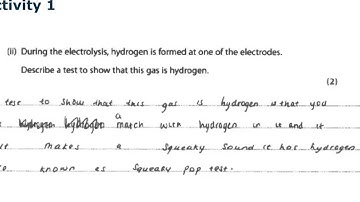 tivity 1
(ii) During the electrolysis, hydrogen is formed at one of the electrodes.
Describe a test to show that this gas is hydrogen.
(2)
test to show that this gas is hydrogen is that you
a
match with hydrogen in it and it
makes a squeaky sound it has hydrogen
known as squeaky pop test.